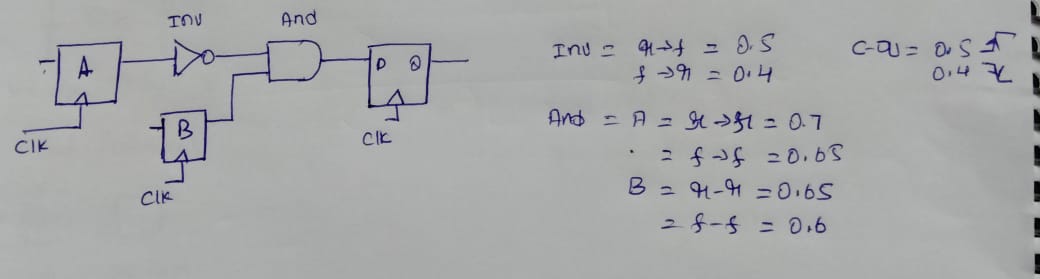 Inv And
A
D Q
B
Clk
Clk
Clk
Inv = r→f = 0.5
f→r = 0.4
C-Q = 0.5
0.4
And = A = r→r = 0.7
= f→f = 0.65
B = r-r = 0.65
= f-f = 0.6